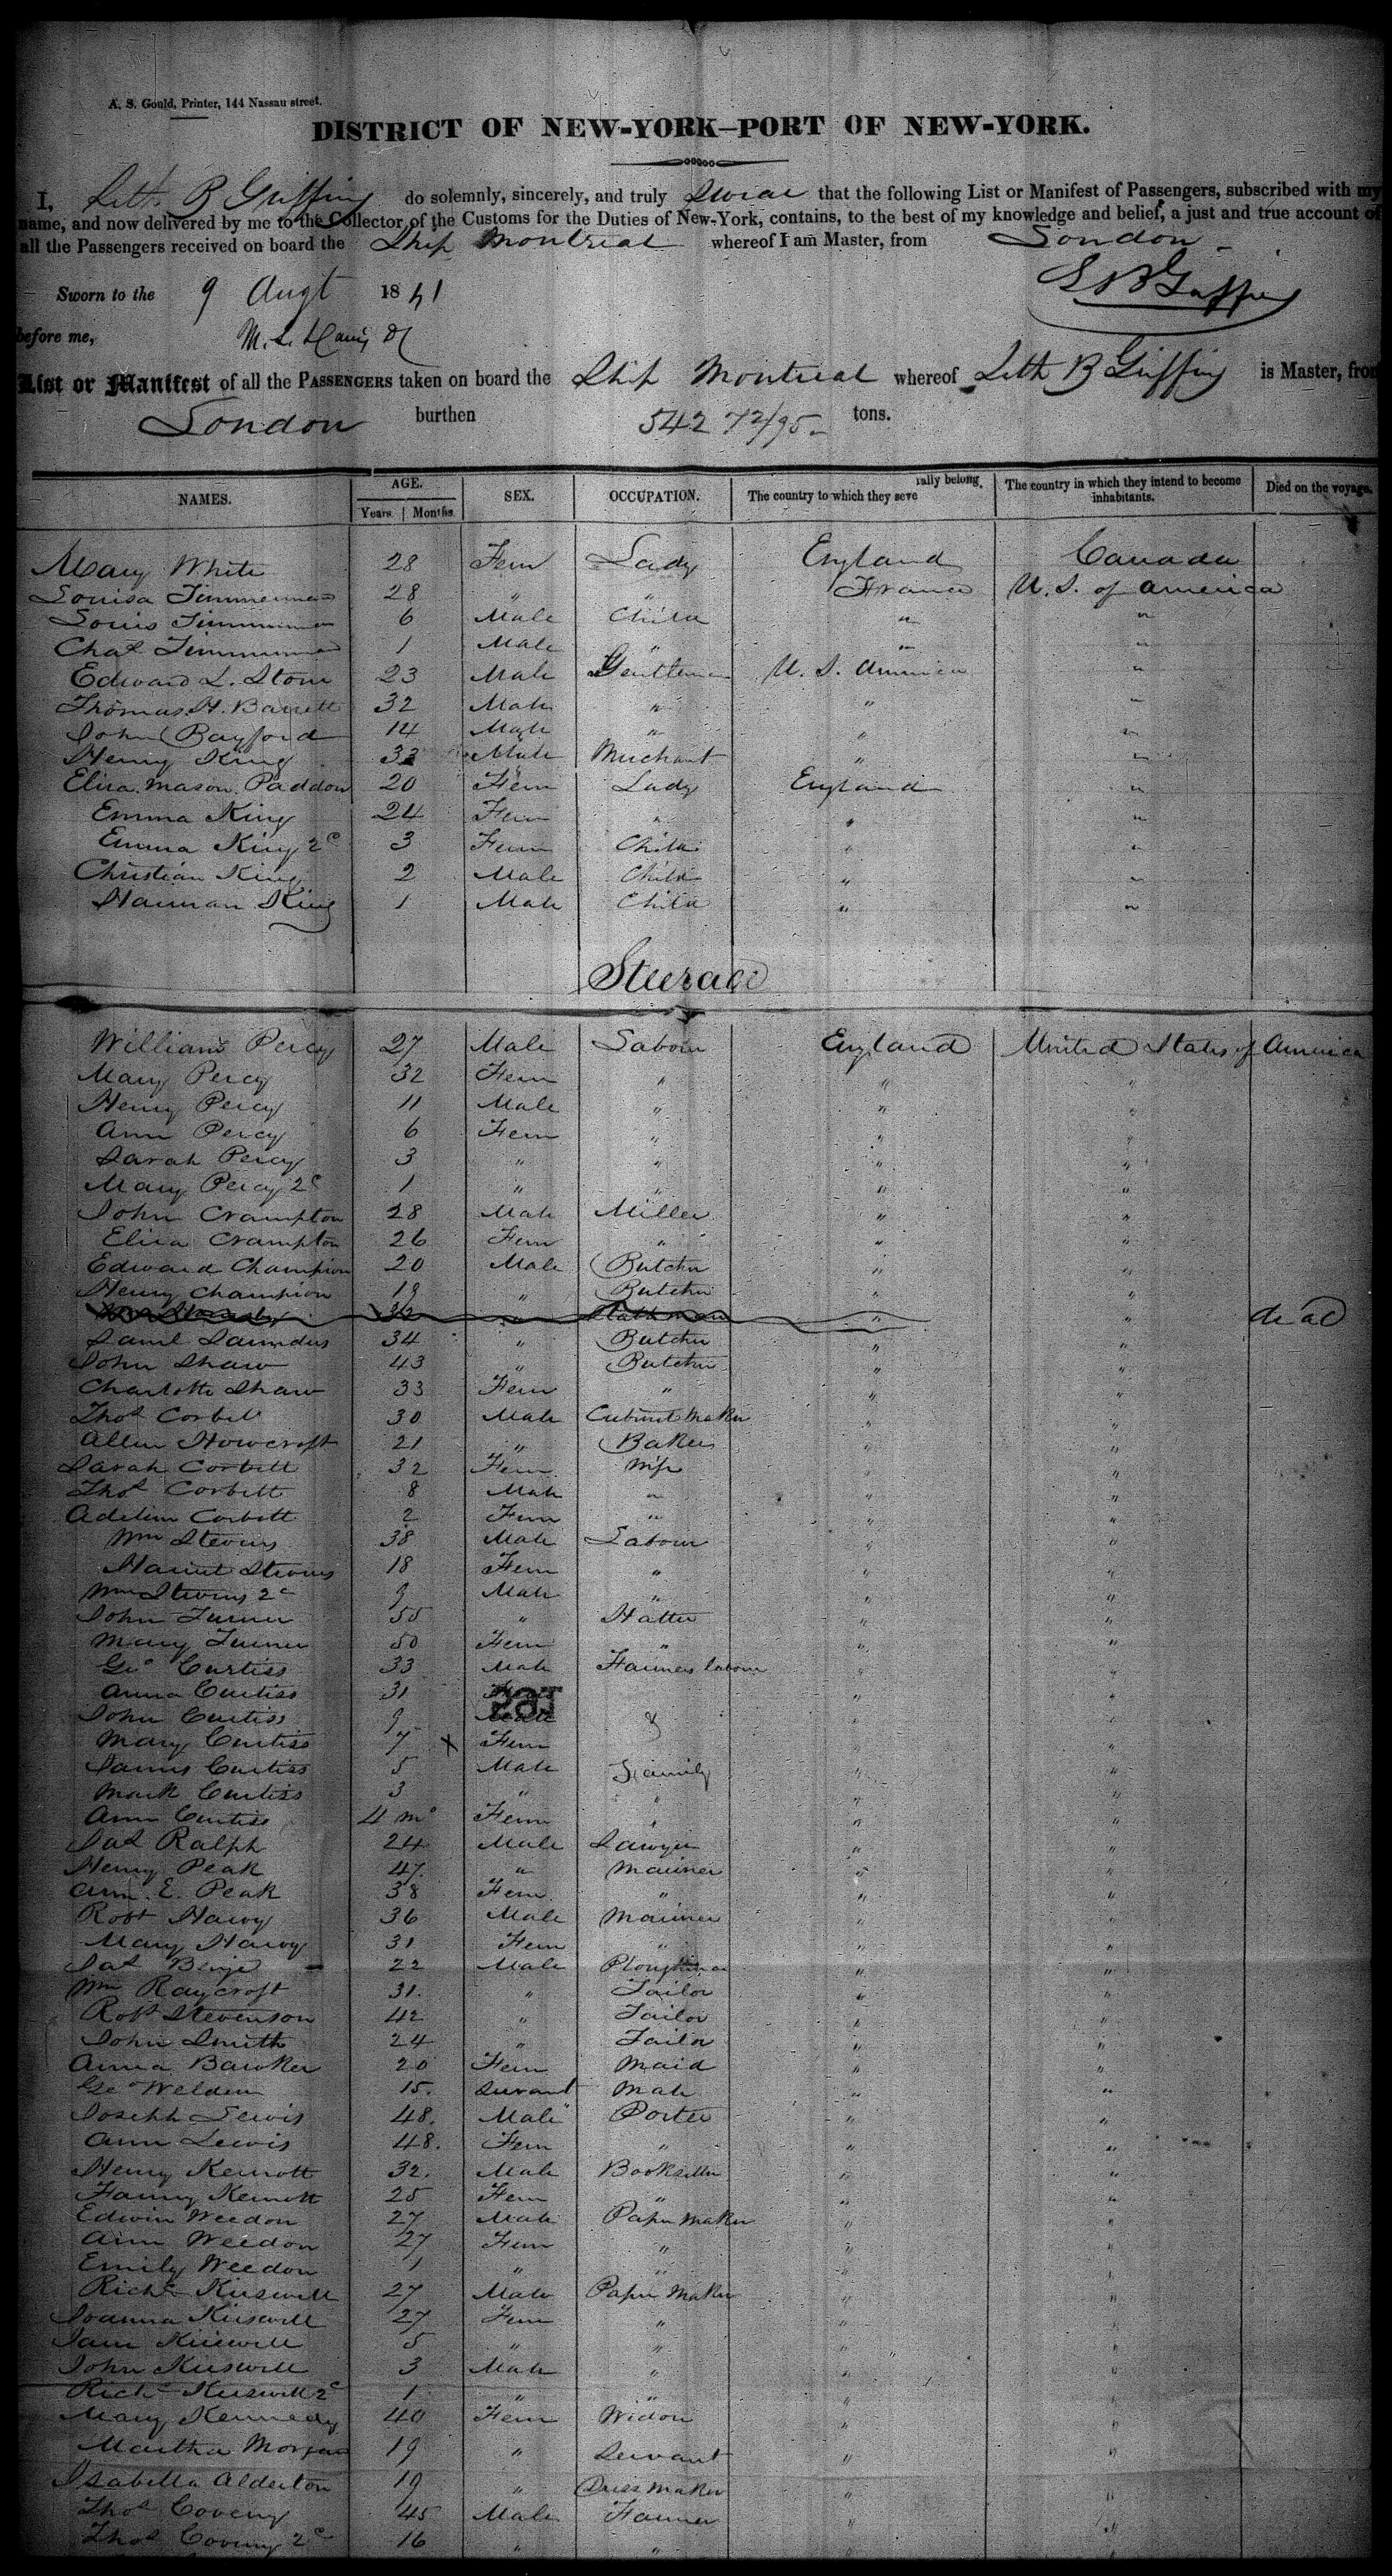 A. S. Gould, Printer, 144 Nassau street.
DISTRICT OF NEW-YORK—PORT OF NEW-YORK.
I, Seth B Griffing do solemnly, sincerely, and truly swear that the following List or Manifest of Passengers, subscribed with my
name, and now delivered by me to the Collector of the Customs for the Duties of New-York, contains, to the best of my knowledge and belief, a just and true account of
all the Passengers received on board the Ship Montreal whereof I am Master, from London
Sworn to the 9 Augt 1841 S B Griffing
before me,
List or Manifest of all the PASSENGERS taken on board the Ship Montreal whereof Seth B Griffing is Master, from
London burthen 542 72/95 tons.
NAMES. AGE. Years Months. SEX. OCCUPATION. The country to which they severally belong. The country in which they intend to become inhabitants. Died on the voyage.
Mary White 28 Fem Lady England Canada
Louisa Timmerman 28 " " France U. S. of America
Louis Timmerman 6 Male Child " "
Chas Timmerman 1 Male " " "
Edward L. Stone 23 Male Gentleman U. S. America "
Thomas H. Barrett 32 Male " " "
John Bayford 14 Male " " "
Henry King 33 Male Merchant " "
Eliza Mason Paddon 20 Fem Lady England "
Emma King 24 Fem " " "
Emma King 2d 3 Fem Child " "
Christian King 2 Male Child " "
Haiman King 1 Male Child " "
Steerage
William Percy 27 Male Labour England United States of America
Mary Percy 32 Fem " " "
Henry Percy 11 Male " " "
Ann Percy 6 Fem " " "
Sarah Percy 3 " " " "
Mary Percy 2d 1 " " " "
John Crampton 28 Male Miller " "
Eliza Crampton 26 Fem " " "
Edward Champion 20 Male Butcher " "
Henry Champion 19 " Butcher " "
32 " " " dead
Saml Saunders 34 " Butcher " "
John Shaw 43 " Butcher " "
Charlotte Shaw 33 Fem " " "
Thos Corbett 30 Male Cabinet Maker " "
Allen Howcroft 21 " Baker " "
Sarah Corbett 32 Fem Wife " "
Thos Corbett 8 Male " " "
Adeline Corbett 2 Fem " " "
Wm Stevens 38 Male Labour " "
Harriet Stevens 18 Fem " " "
Wm Stevens 2d 9 Male " " "
John Turner 55 " Hatter " "
Mary Turner 50 Fem " " "
Geo Curtiss 33 Male Farmers labour " "
Anna Curtiss 31 " "
John Curtiss 9 Male & " "
Mary Curtiss 7 x Fem " "
James Curtiss 5 Male Family " "
Mark Curtiss 3 " " " "
Ann Curtiss 4 mo Fem " " "
Jas Ralph 24 Male Sawyer " "
Henry Peak 47 " Mariner " "
Ann E. Peak 38 Fem " " "
Robt Harvy 36 Male Mariner " "
Mary Harvy 31 Fem " " "
Jas Benje 22 Male Ploughman " "
Wm Raycroft 31. " Tailor " "
Robt Stevenson 42 " Tailor " "
John Smith 24 " Tailor " "
Anna Bawker 20 Fem Maid " "
Geo Welden 15. Servant Male " "
Joseph Lewis 48. Male Porter " "
Ann Lewis 48. Fem " " "
Henry Kernott 32. Male Bookseller " "
Fanny Kernott 25 Fem " " "
Edwin Weedon 27 Male Paper Maker " "
Ann Weedon 27 Fem " " "
Emily Weedon 1 " " " "
Richd Kuswell 27 Male Paper Maker " "
Joanna Kuswell 27 Fem " " "
Jane Kuswell 5 " " " "
John Kuswell 3 Male " " "
Richd Kuswell 2d 1 " " " "
Mary Kennedy 40 Fem Widow " "
Martha Morgan 19 " Servant " "
Isabella Alderton 19 " Dress Maker " "
Thos Coveny 45 Male Farmer " "
Thos Coveny 2d 16 " " " "